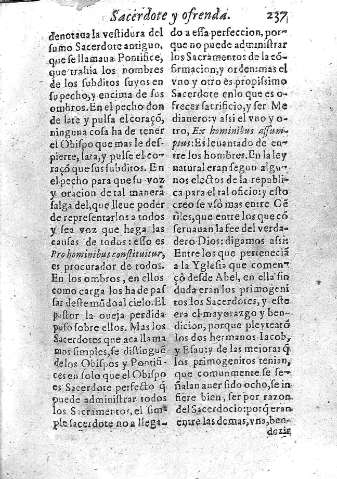 Sacerdote y ofrenda. 237
denotaua la vestidura del
sumo Sacerdote antiguo,
que se llamaua Pontifice,
que trahia los nombres
de los subditos suyos en
su pecho, y encima de sus
ombros. En el pecho don
de late y pulsa el coraçõ,
ninguna cosa ha de tener
el Obispo que mas le des-
pierte, lata, y pulse el co-
raçõ que sus subditos. En
el pecho para que su voz
y oracion de tal manera
salga del, que lleue poder
de representarlos a todos
y sea voz que haga las
causas de todos: esso es
Pro hominibus constituitur,
es procurador de todos.
En los ombros, en ellos
como carga los ha de pas
sar deste mũdo al cielo. El
pastor la oueja perdida
puso sobre ellos. Mas los
Sacerdotes que aca llama
mos simples, se distinguẽ
de los Obispos y Pontifi-
ces en solo que el Obispo
es Sacerdote perfecto q̃
puede administrar todos
los Sacramentos, el sim-
ple sacerdote no allega-
do a essa perfeccion, por-
que no puede administrar
los Sacramentos de la cõ-
firmacion, y orden: mas el
vno y otro es propissimo
Sacerdote en lo que es o-
freces sacrificio, y ser Me
dianero: y assi el vno y o-
tro, Ex hominibus assum-
ptus: Es leuantado de en-
tre los hombres. En la ley
natural eran segun algu-
nos electos de la republi-
ca para el tal oficio: y esto
creo se vsò mas entre Gẽ
tiles, que entre los que cõ
seruauan la fee del verda-
dero Dios: digamos assi:
Entre los que pertenecia
a la Yglesia que comen-
çò desde Abel, en ella sin
duda eran los primogeni
tos los Sacerdotes, y este
era el mayorazgo y ben-
dicion, porque pleytearõ
los dos hermanos Iacob,
y Esau: y de las mejoras q̃
los primogenitos tenian,
que comunmente se se-
ñalan auer sido ocho, se in
fiere bien, ser por razon
del Sacerdocio: porq̃ eran
entre las demas, vna, ben-
dezir